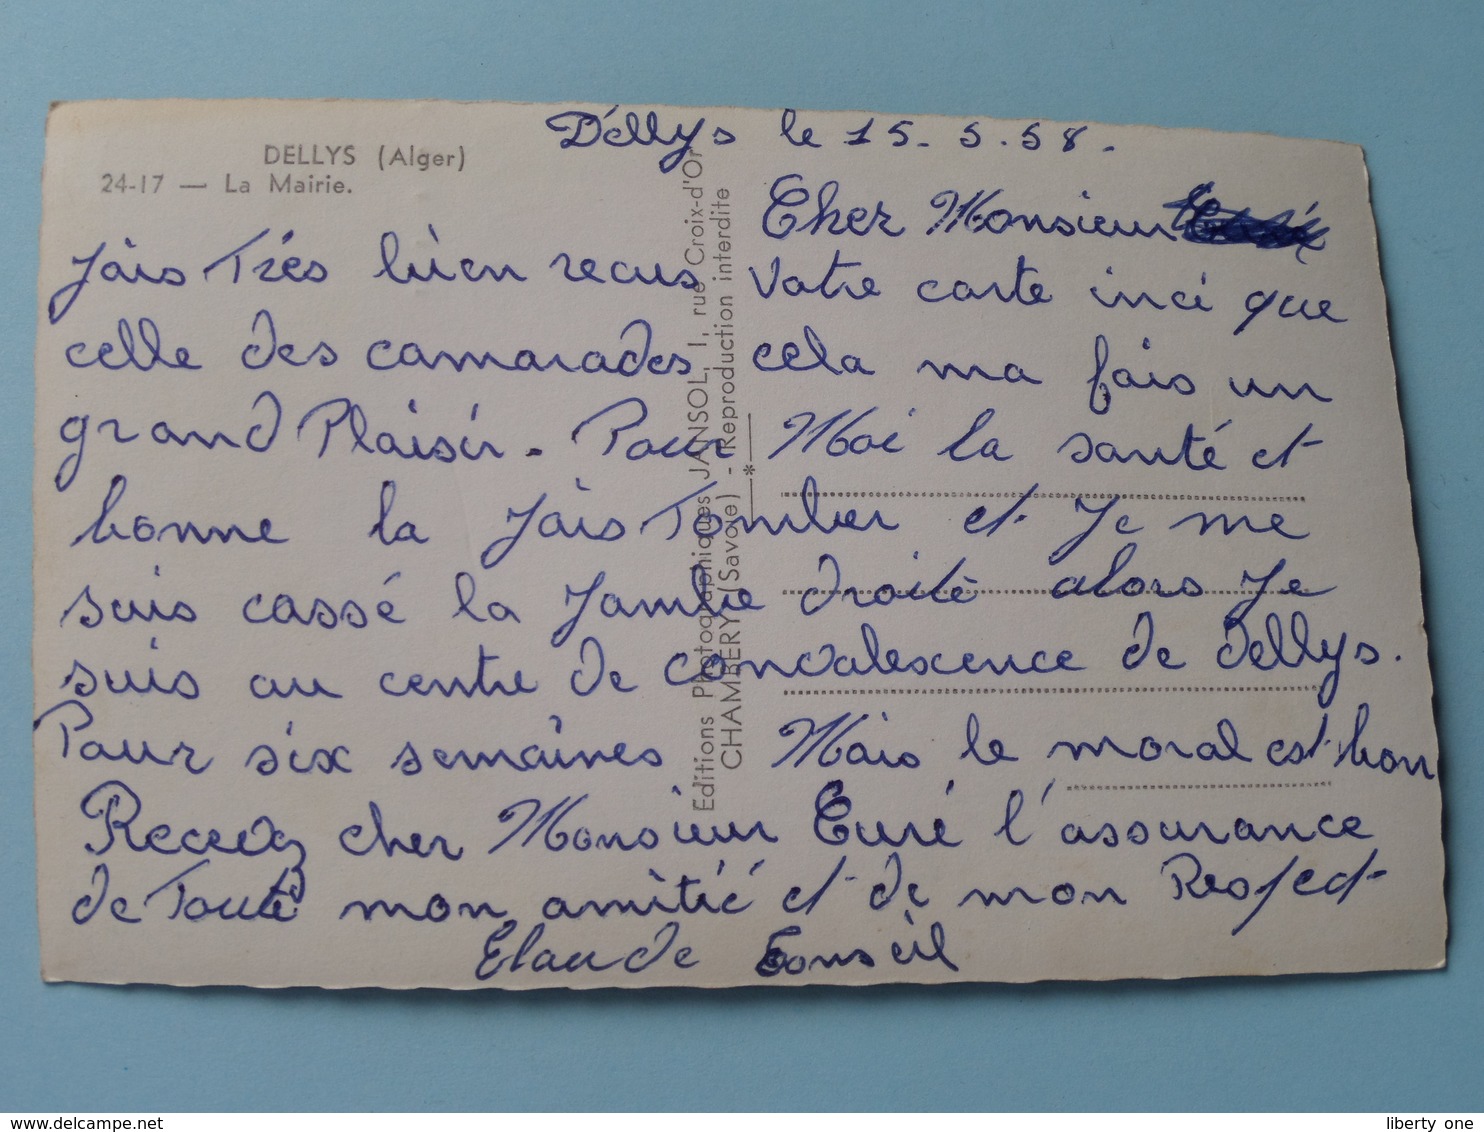 DELLYS (Alger)
24-17 — La Mairie.
Déllys le 15. 5. 58.
Cher Monsieur
Jais Trés bien recus votre carte inci que
celle des camarades cela ma fais un
grand Plaisir. Pour Moi la santé et
bonne la Jais Tomber et Je me
suis cassé la Jambe droite alors Je
suis au centre de convalescence de Dellys.
Pour six semaines Mais le moral est bon
Recevez cher Monsieur Curé l'assurance
de Toute mon amitié et de mon Respect
Claude Conseil
Editions Photographiques JANSOL, 1, rue Croix-d'Or
CHAMBERY (Savoie) - Reproduction interdite
delcampe.net
liberty one